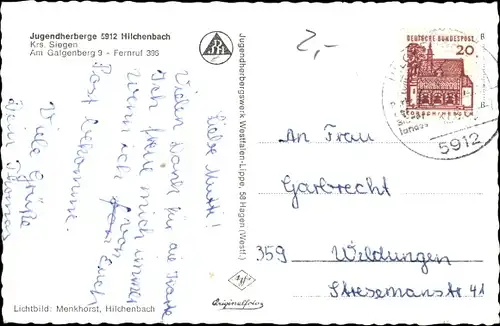 Jugendherberge 5912 Hilchenbach
Krs. Siegen
Am Galgenberg 3 - Fernruf 396
Liebe Mutti!
Vielen Dank für die Karte
Ich freue mich immer
wenn ich von Euch
Post bekomme.
Viele Grüße
Dein Thomas
Lichtbild: Menkhorst, Hilchenbach
Jugendherbergswerk Westfalen-Lippe, 58 Hagen (Westf.)
Originalfoto
2,-
DEUTSCHE BUNDESPOST
20
5912
An Frau
Garbrecht
359 Wildungen
Stresemanstr 41